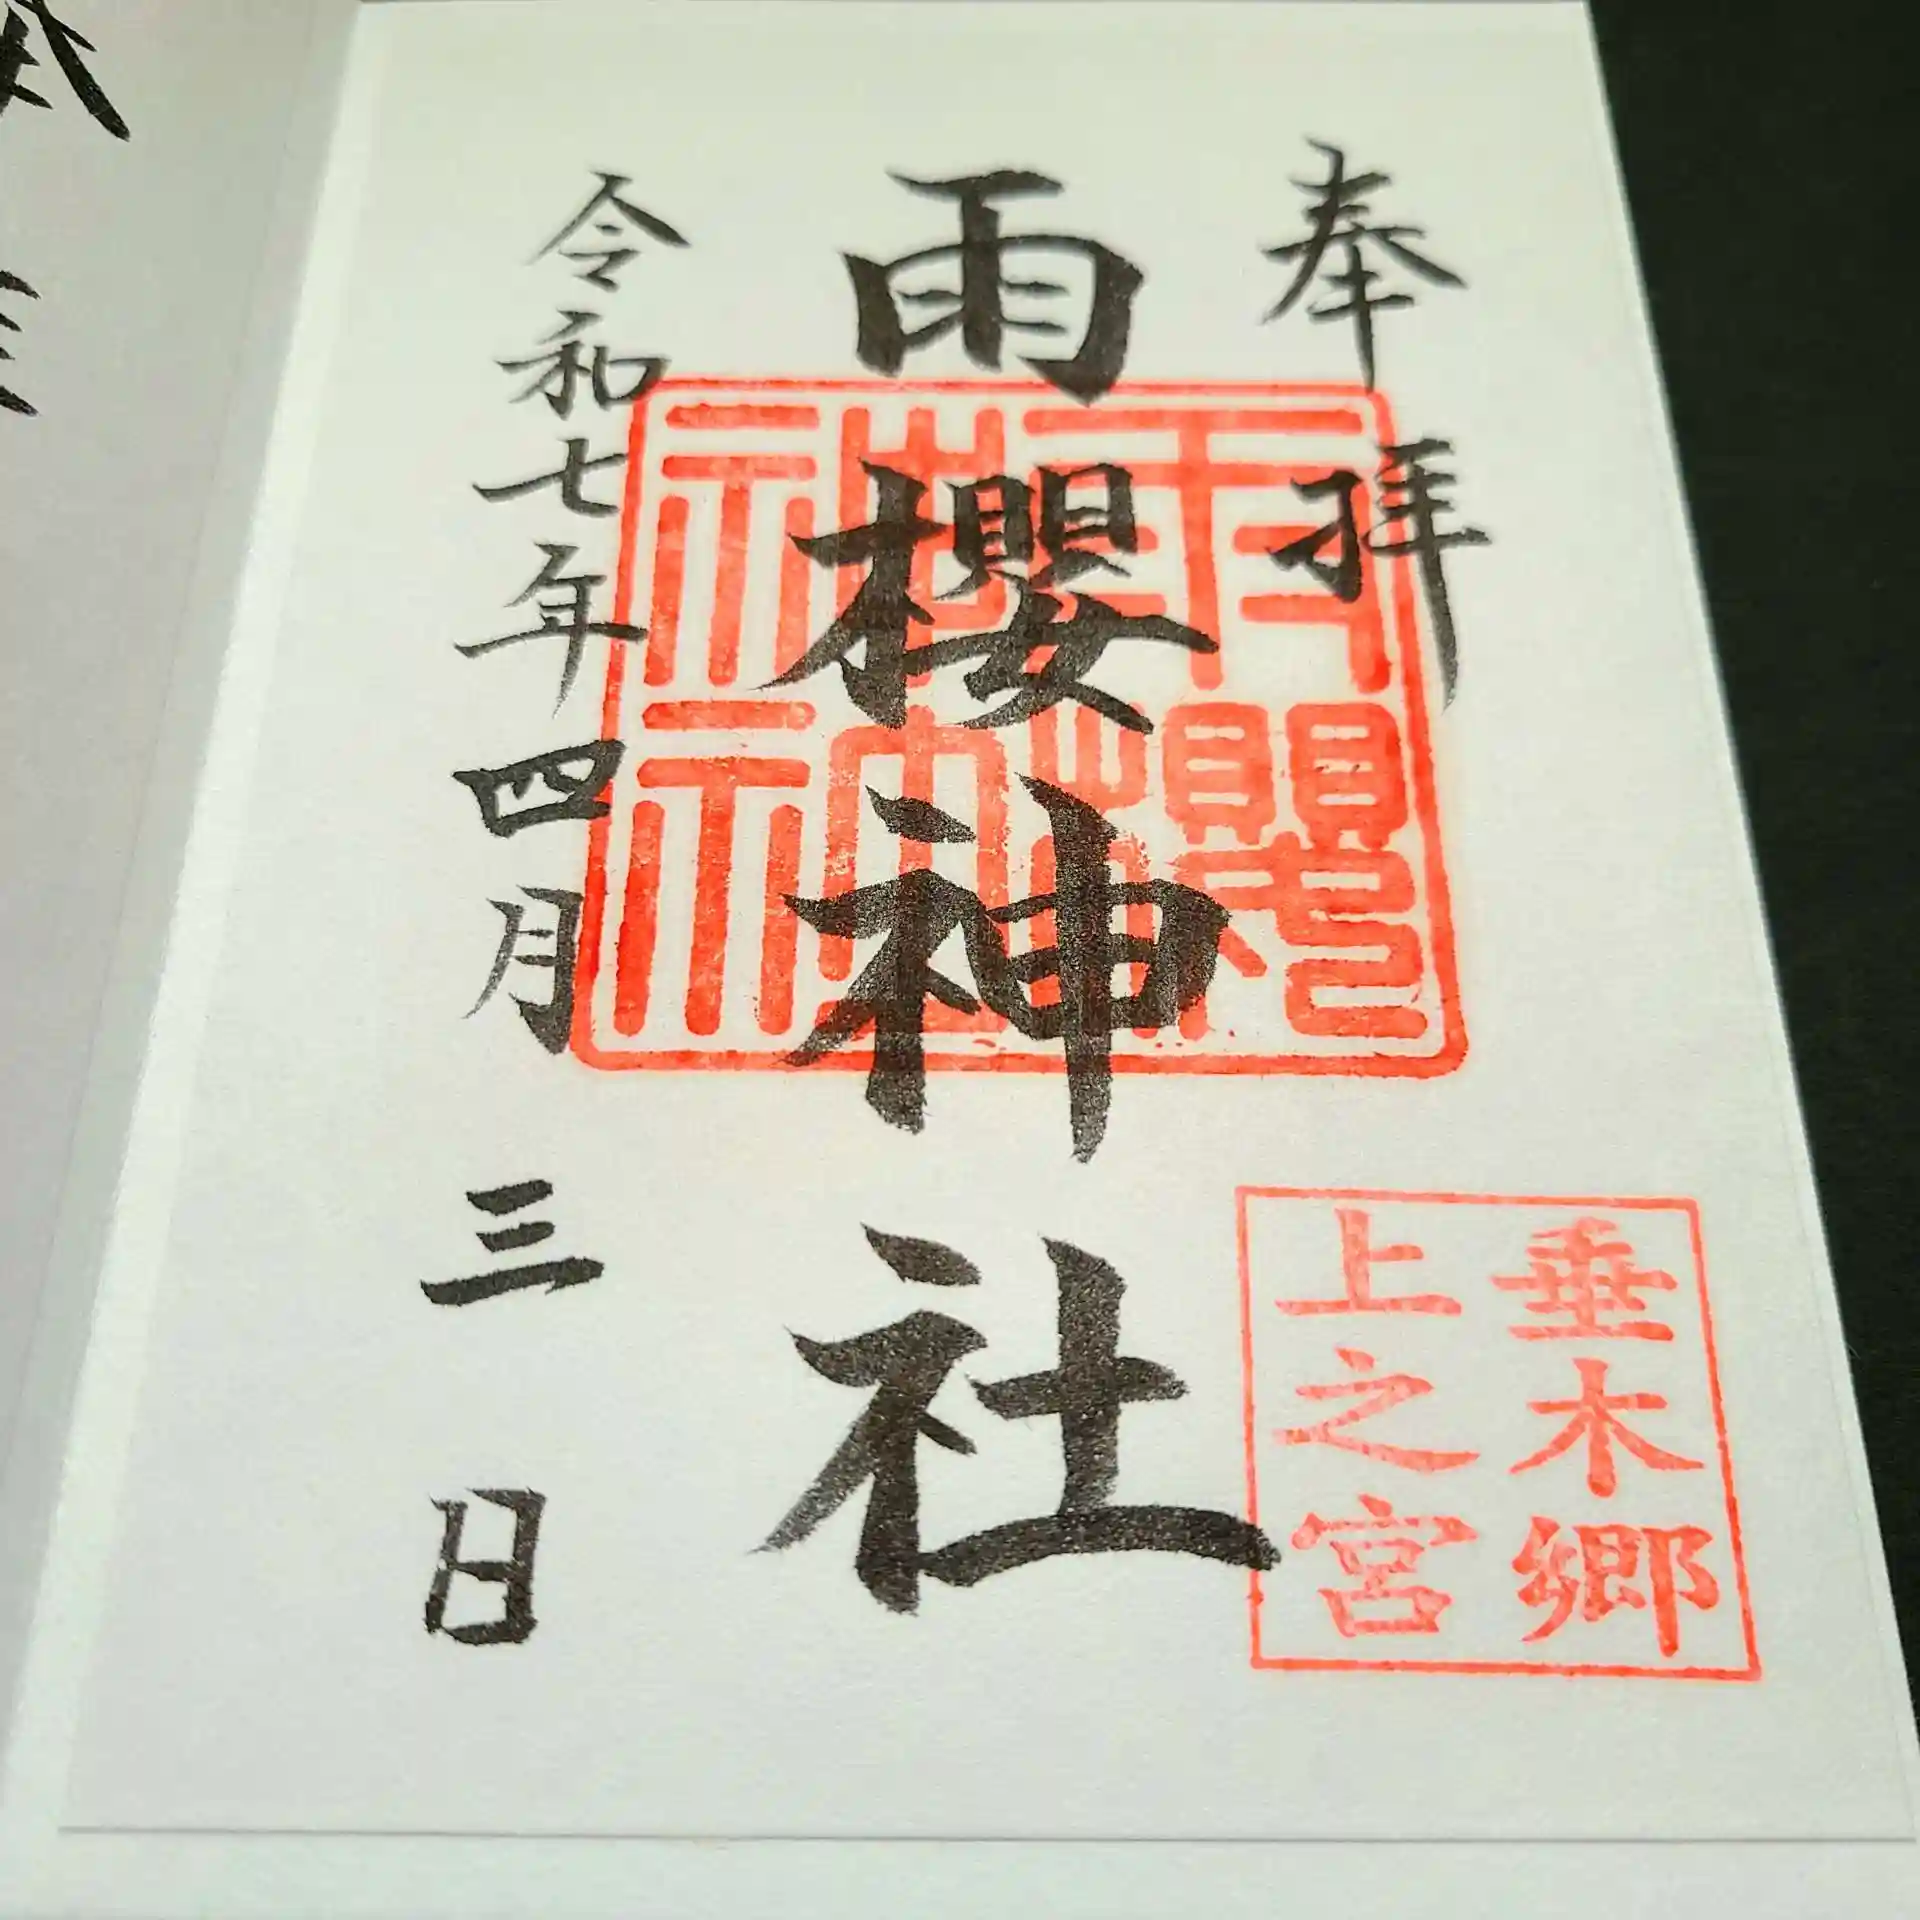 奉拝
雨櫻神社
令和七年四月三日
雨櫻
神社
垂木郷
上之宮